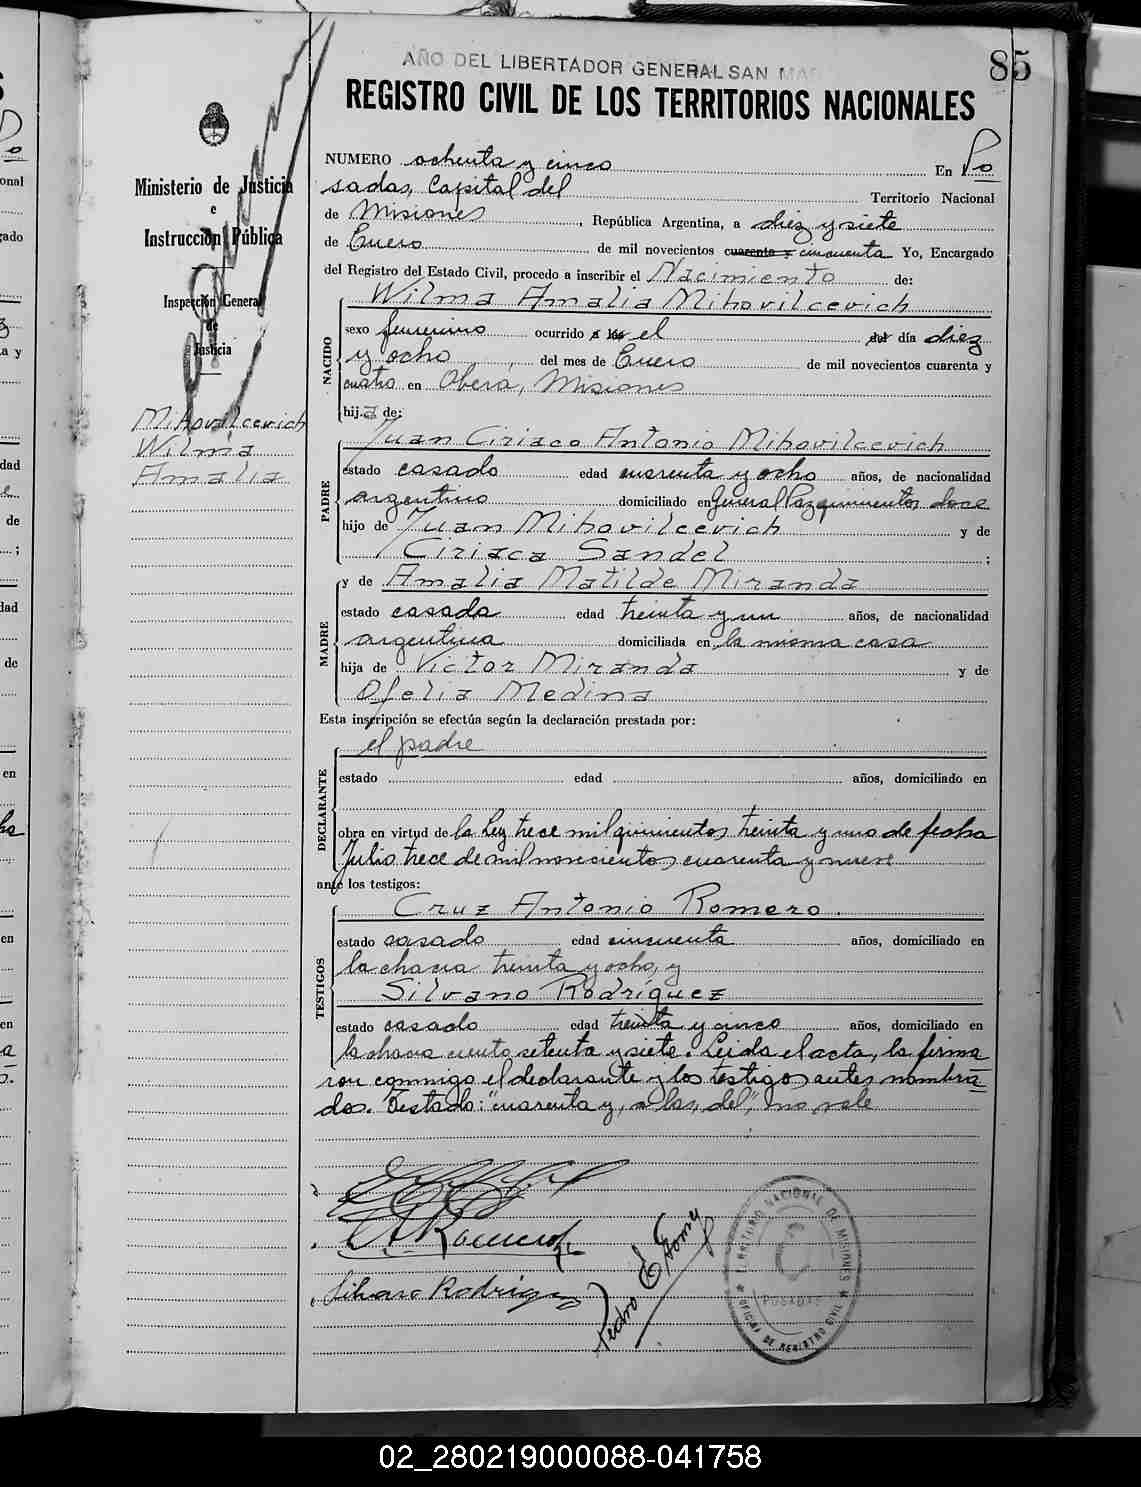 AÑO DEL LIBERTADOR GENERAL SAN MAR
85
REGISTRO CIVIL DE LOS TERRITORIOS NACIONALES
Ministerio de Justicia
e
Instrucción Pública
Inspección General
de
Justicia
Mihovilcevich
Wilma
Amalia
NUMERO ochenta y cinco En Po
sadas, Capital del Territorio Nacional
de Misiones, República Argentina, a diez y siete
de Enero de mil novecientos cuarenta y cincuenta Yo, Encargado
del Registro del Estado Civil, procedo a inscribir el Nacimiento de:
NACIDO
Wilma Amalia Mihovilcevich
sexo femenino ocurrido a las el del día diez
y ocho, del mes de Enero de mil novecientos cuarenta y
cuatro en Oberá, Misiones
hija de:
PADRE
Juan Ciriaco Antonio Mihovilcevich
estado casado edad cuarenta y ocho años, de nacionalidad
argentino domiciliado en General Paz quinientos doce
hijo de Juan Mihovilcevich y de
Ciriaca Sandel ;
MADRE
y de Amalia Matilde Miranda
estado casada edad treinta y un años, de nacionalidad
argentina domiciliada en la misma casa
hija de Victor Miranda y de
Ofelia Medina
Esta inscripción se efectúa según la declaración prestada por:
DECLARANTE
el padre
estado edad años, domiciliado en
obra en virtud de la Ley trece mil quinientos treinta y uno de fecha
Julio trece de mil novecientos cuarenta y nueve
ante los testigos:
TESTIGOS
Cruz Antonio Romero.
estado casado edad cincuenta años, domiciliado en
la chacra treinta y ocho, y
Silvano Rodríguez
estado casado edad treinta y cinco años, domiciliado en
la chacra ciento setenta y siete. Leida el acta, la firma
ron conmigo el declarante y los testigos antes nombra
dos. Testado: "cuarenta y, a las, del", no vale
Silvano Rodriguez
Pedro E
TERRITORIO NACIONAL DE MISIONES
POSADAS
OFICINA DE REGISTRO CIVIL
02_280219000088-041758